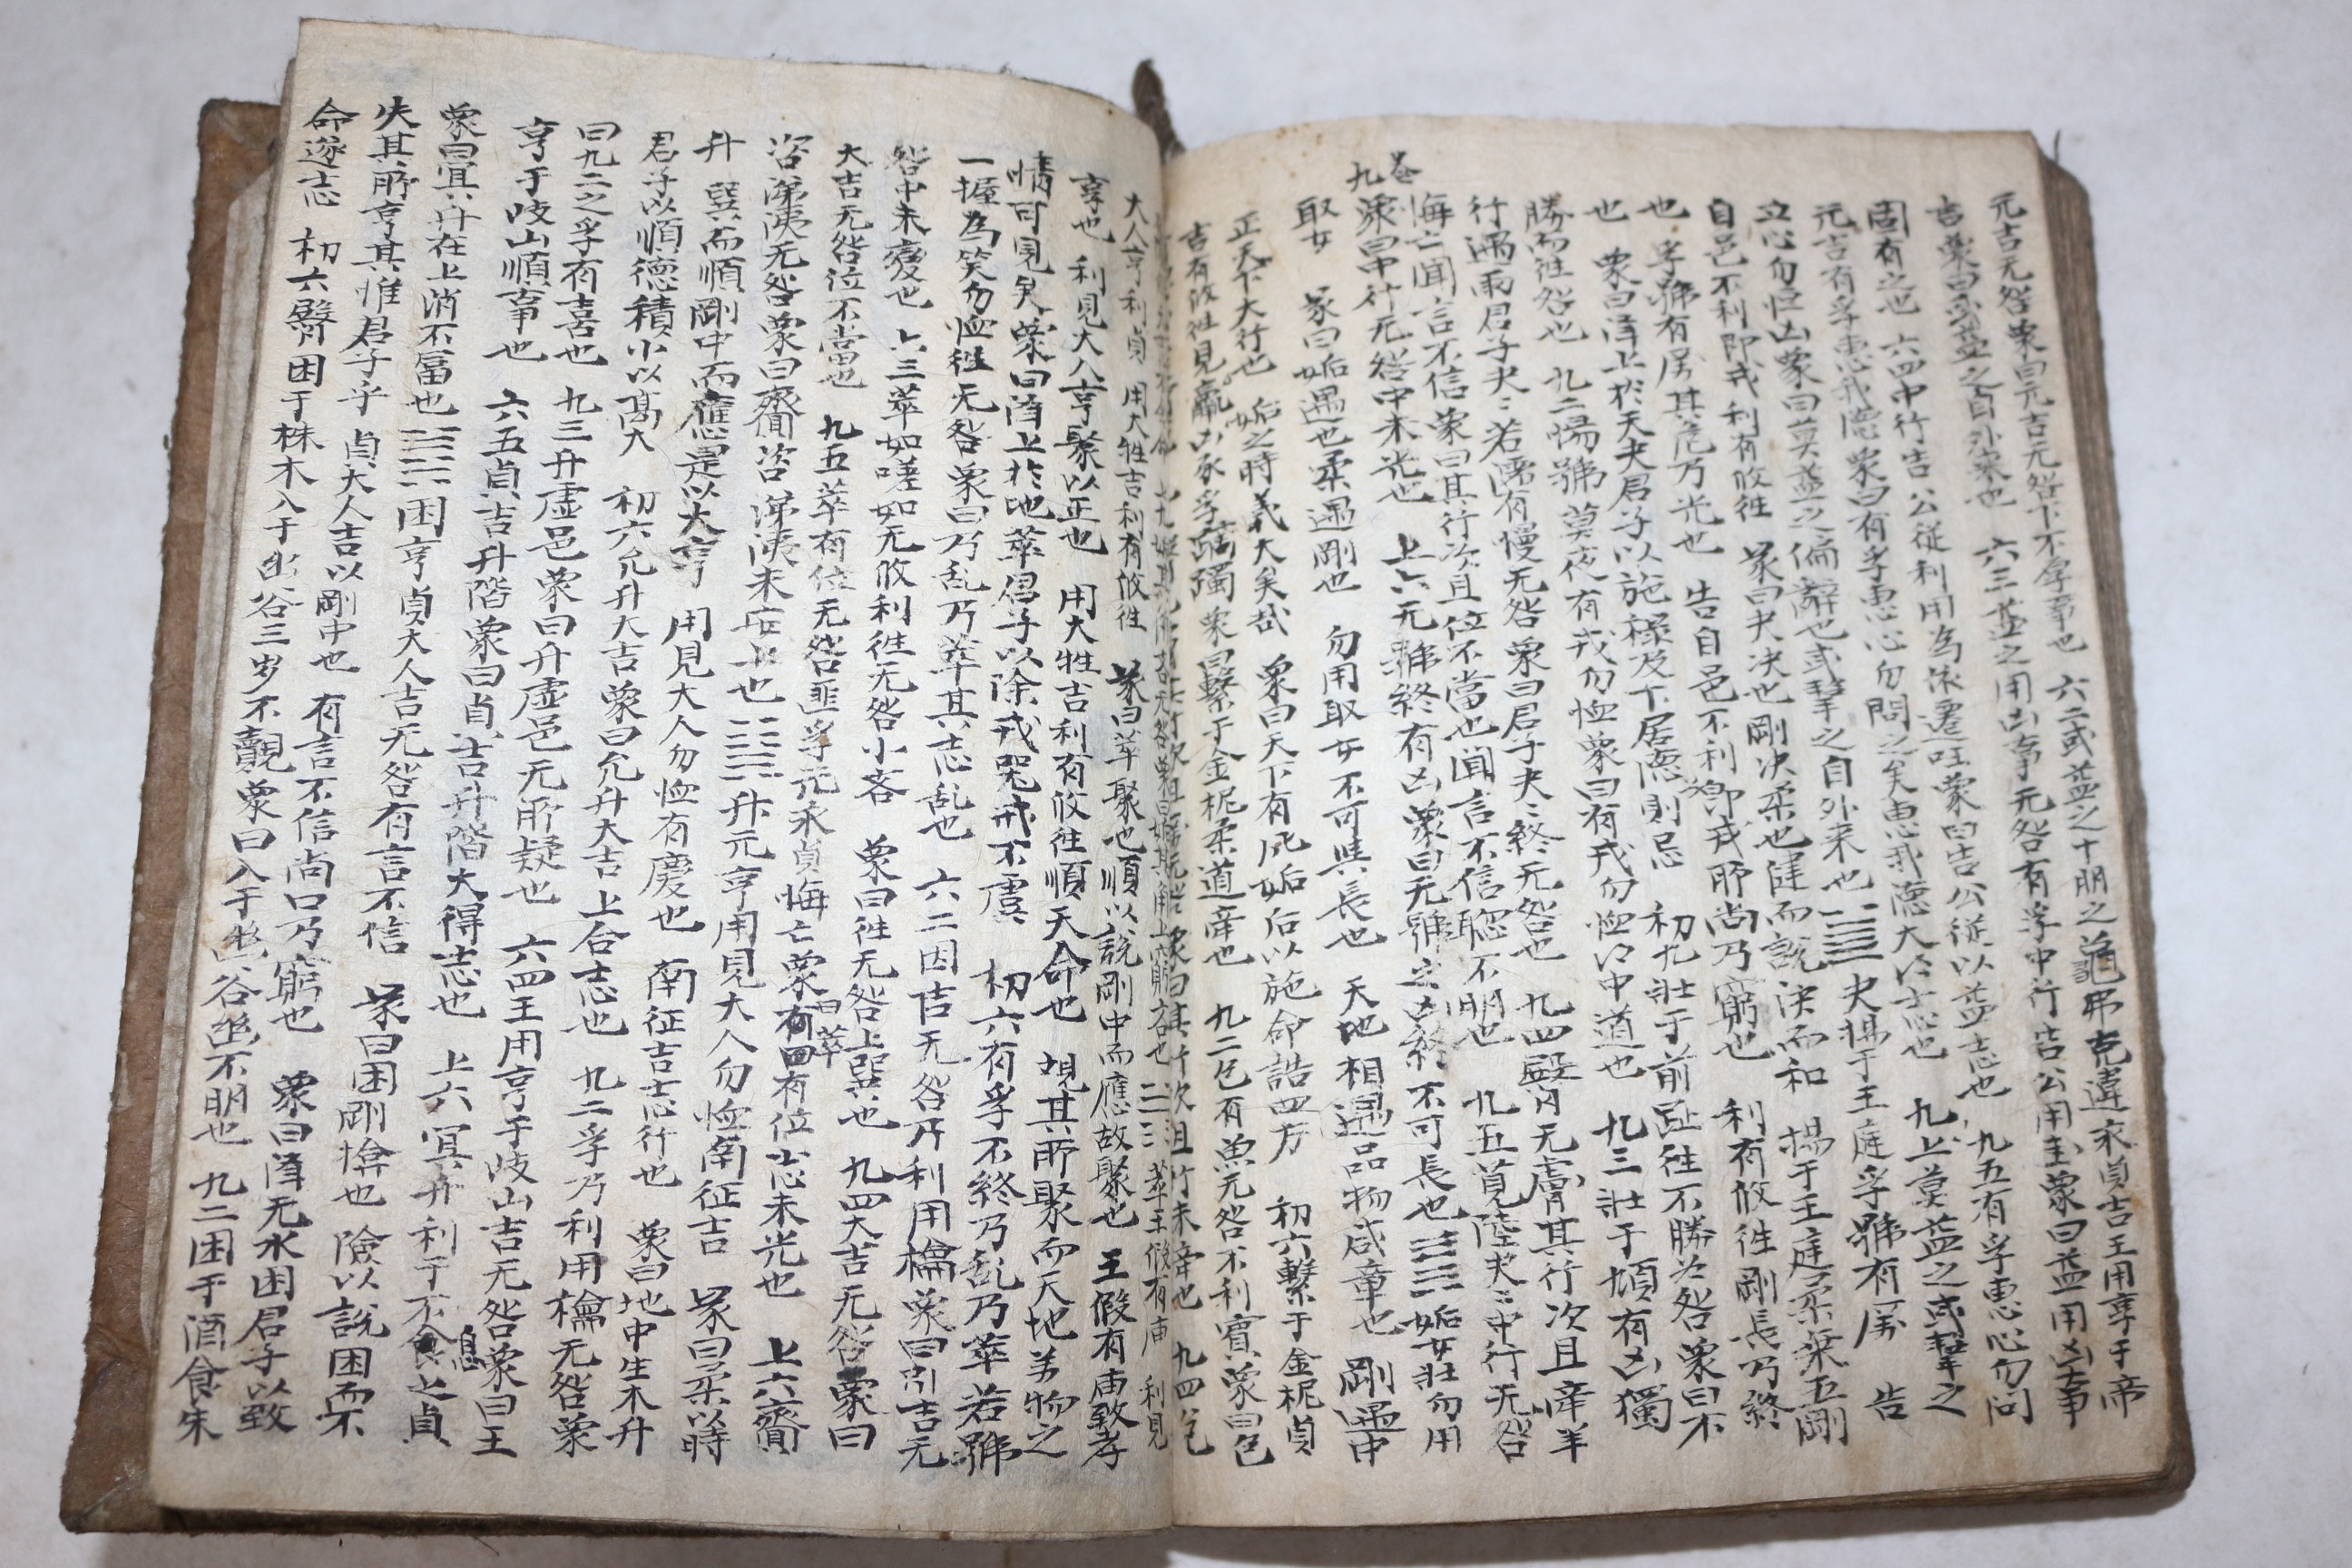 元吉无咎象曰元吉无咎下不厚事也 六二或益之十朋之龜弗克違永貞吉王用享于帝
吉象曰或益之自外来也 六三益之用凶事无咎有孚中行告公用圭象曰益用凶事
固有之也 六四中行告公従利用為依遷 象曰告公従以益志也 九五有孚惠心勿問
元吉有孚惠我德象曰有孚惠心勿問之矣惠我德大得志也 上九莫益之或擊之
立心勿恒凶象曰莫益之偏辭也或擊之自外来也 ䷪ 夬揚于王庭孚號有厲 告
自邑不利即戎利有攸往 彖曰夬決也剛決柔也健而說決而和 揚于王庭柔乗五剛
也 孚號有厲其危乃光也 告自邑不利即戎所尚乃窮也 利有攸往剛長乃終
也 象曰澤上於天夬君子以施禄及下居德則忌 初九壯于前趾往不勝為咎象曰不
勝而往咎也 九二惕號莫夜有戎勿恤象曰有戎勿恤得中道也 九三壯于頄有凶獨
行遇雨君子夬〻若濡有慢无咎象曰君子夬〻終无咎也 九四臀有无膚其行次且牽羊
悔亡聞言不信象曰其行次且位不當也聞言不信聡不明也 九五莧陸夬〻中行无咎
九 卷
象曰中行无咎中未光也 上六无號終有凶象曰无號之凶終不可長也 ䷫ 姤女壯勿用
取女 彖曰姤遇也柔遇剛也 勿用取女不可與長也 天地相遇品物咸章也 剛遇中
正天下大行也 姤之時義大矣哉 象曰天下有風姤后以施命誥四方 初六繫于金柅貞
吉有攸往見凶羸豕孚蹢躅 象曰繫于金柅柔道牽也 九二包有魚无咎不利賓象曰包
大人亨利貞 用大牲吉利有攸往 彖曰萃聚也順以說剛中而應故聚也 王假有庙致孝
享也 利見大人亨聚以正也 用大牲吉利有攸往順天命也 覌其所聚而天地万物之
情可見矣象曰澤上於地萃君子以除戎器戒不虞 初六有孚不終乃乱乃萃若號
一握為笑勿恤往无咎象曰乃乱乃萃其志乱也 六二因吉无咎孚乃利用禴象曰引吉无
咎中未變也 六三萃如嗟如无攸利往无咎小吝 象曰往无咎上巽也 九四大吉无咎象曰
大吉无咎位不當也 九五萃有位无咎匪孚元永貞悔亡象曰萃有位志未光也 上六齎
咨涕洟无咎象曰齎咨涕洟未安上也 ䷭ 升元亨用見大人勿恤南征吉 彖曰柔以時
升 巽而順剛中而應是以大亨 用見大人勿恤有慶也 南征吉志行也 象曰地中生木升
君子以順德積小以高大 初六允升大吉象曰允升大吉上合志也 九二孚乃利用禴无咎象
曰九二之孚有喜也 九三升虛邑象曰升虛邑无所疑也 六四王用亨于岐山吉无咎象曰王
亨于岐山順事也 六五貞吉升階象曰貞吉升階大得志也 上六冥升利于不息之貞
象曰冥升在上消不富也 ䷮ 困亨貞大人吉无咎有言不信 彖曰困剛揜也 險以說困而不
失其所亨其惟君子乎 貞大人吉以剛中也 有言不信尚口乃窮也 象曰澤无水困君子以致
命遂志 初六臀困于株木入于幽谷三岁不覿象曰入于幽谷幽不明也 九二困于酒食朱